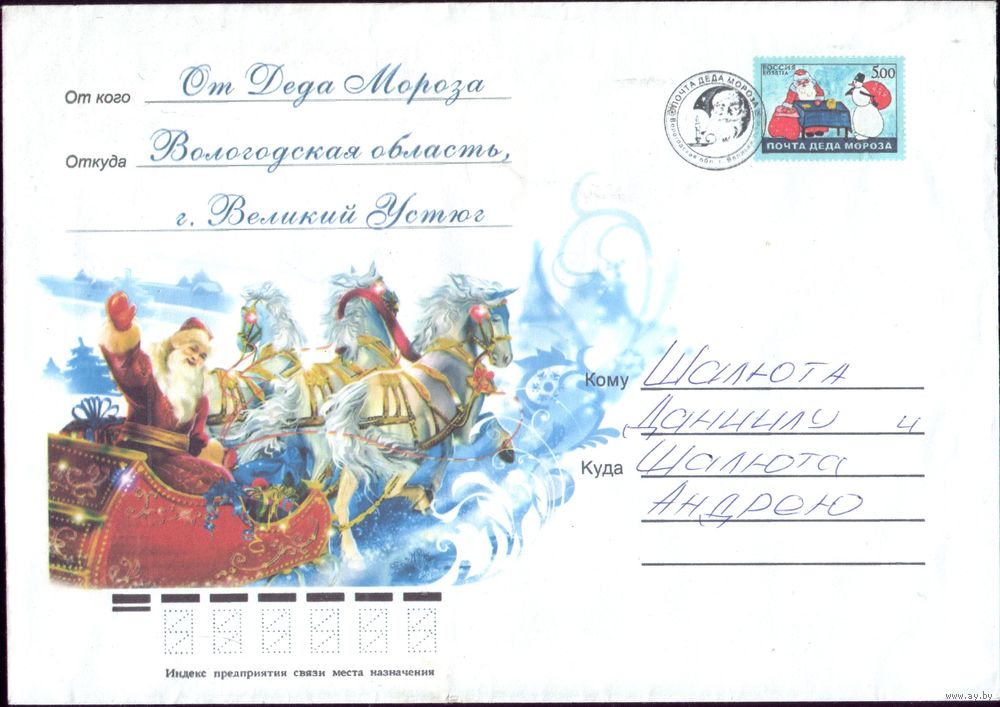 От кого От Деда Мороза
Откуда Вологодская область,
г. Великий Устюг
ПОЧТА ДЕДА МОРОЗА
Вологодская обл. г. Великий
РОССИЯ
ROSSIJA
5.00
ПОЧТА ДЕДА МОРОЗА
Кому Шалюта
Даниилу и
Куда Шалюта
Андрею
Индекс предприятия связи места назначения
www.ay.by